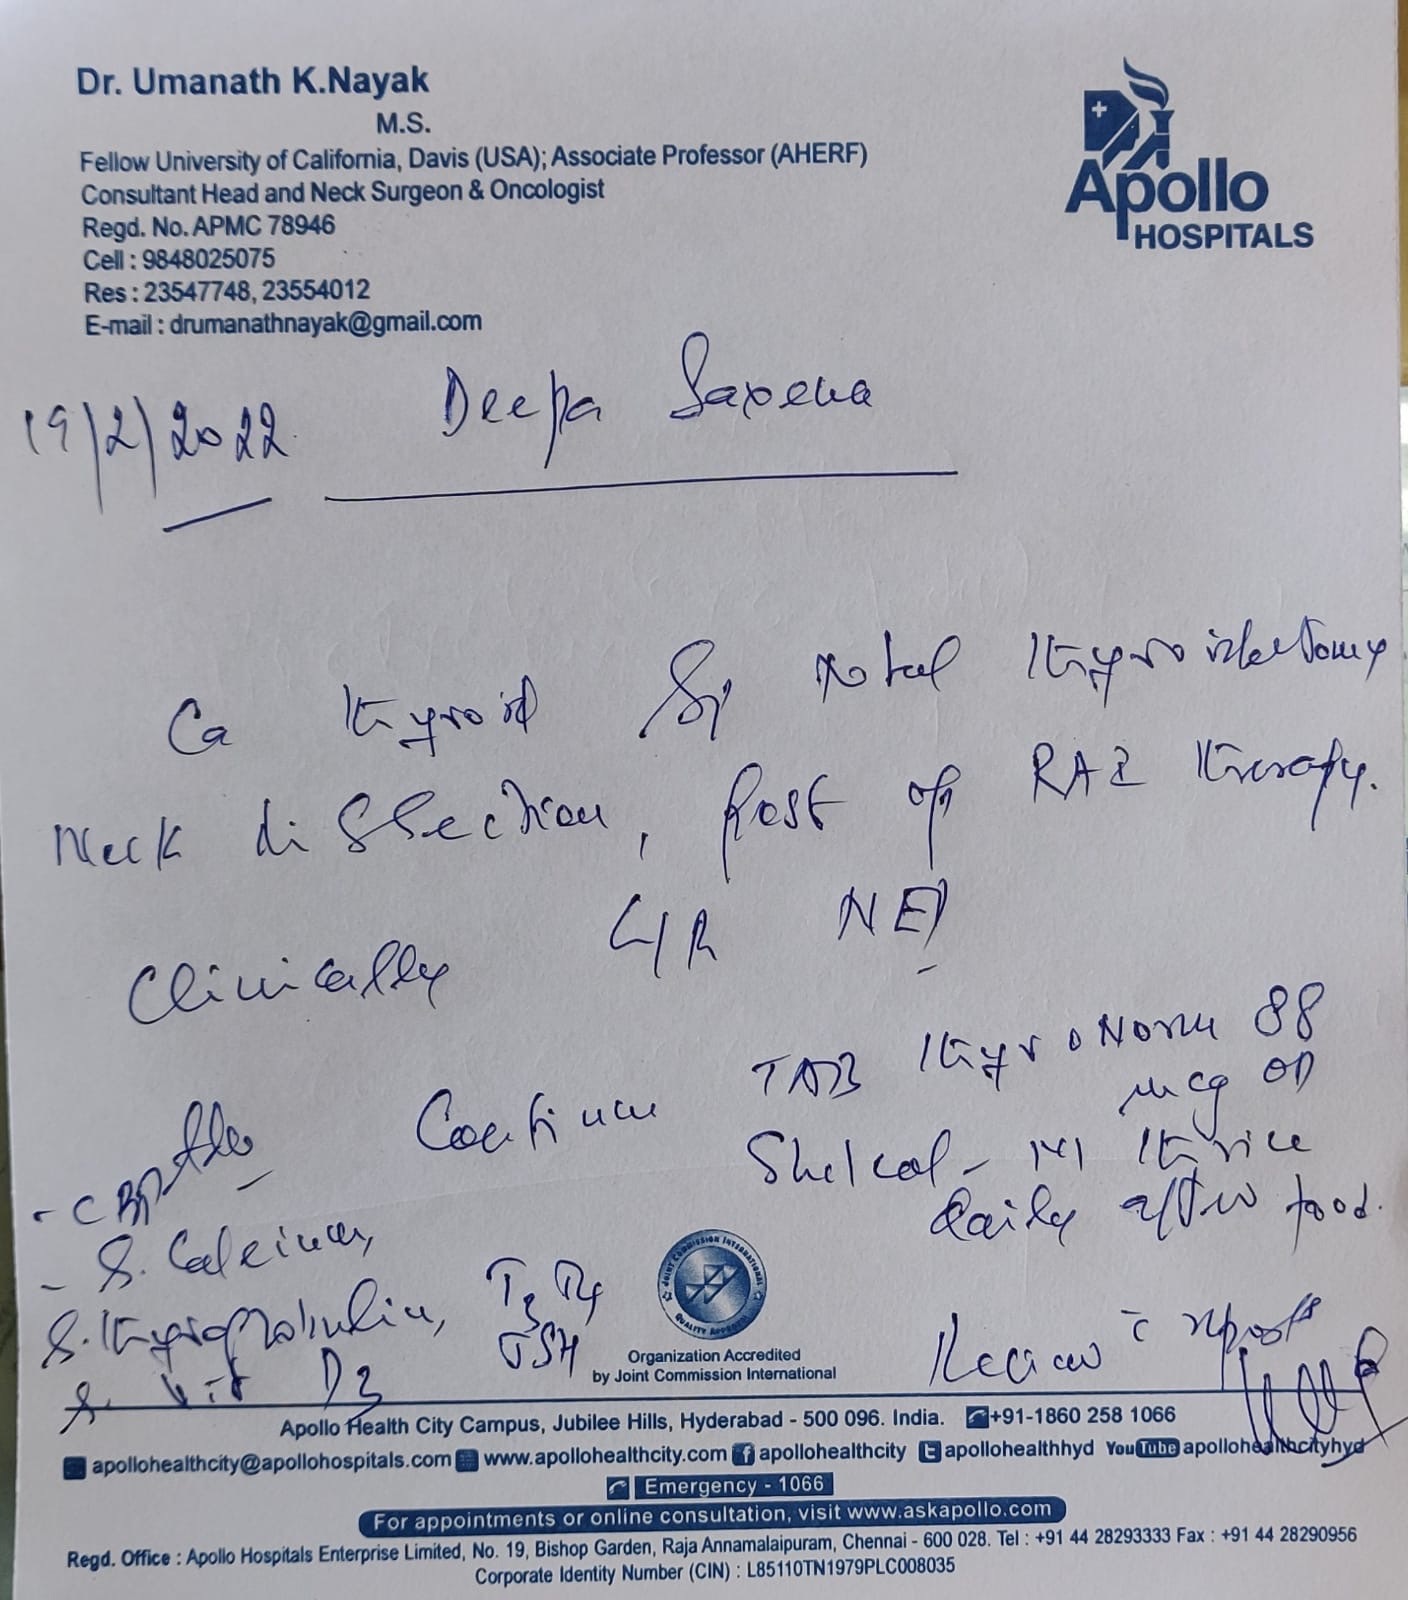 Dr. Umanath K.Nayak
M.S.
Fellow University of California, Davis (USA); Associate Professor (AHERF)
Consultant Head and Neck Surgeon & Oncologist
Regd. No. APMC 78946
Cell : 9848025075
Res : 23547748, 23554012
E-mail : drumanathnayak@gmail.com
Apollo
HOSPITALS
19/2/2022 Deepa Saxena
Ca thyroid total thyroidectomy
Neck dissection, Post op RAI therapy.
Clinically L/R NED
Continue TAB ThyroNorm 88
mcg OD
Shelcal - 1x1 thrice
daily after food.
- CBP
- S. Calcium,
S. thyroglobulin, T3 T4
TSH
S. Vit D3
Review c reports
JOINT COMMISSION INTERNATIONAL
QUALITY APPROVAL
Organization Accredited
by Joint Commission International
Apollo Health City Campus, Jubilee Hills, Hyderabad - 500 096. India. +91-1860 258 1066
apollohealthcity@apollohospitals.com www.apollohealthcity.com f apollohealthcity t apollohealthhyd YouTube apollohealthcityhyd
Emergency - 1066
For appointments or online consultation, visit www.askapollo.com
Regd. Office : Apollo Hospitals Enterprise Limited, No. 19, Bishop Garden, Raja Annamalaipuram, Chennai - 600 028. Tel : +91 44 28293333 Fax : +91 44 28290956
Corporate Identity Number (CIN) : L85110TN1979PLC008035